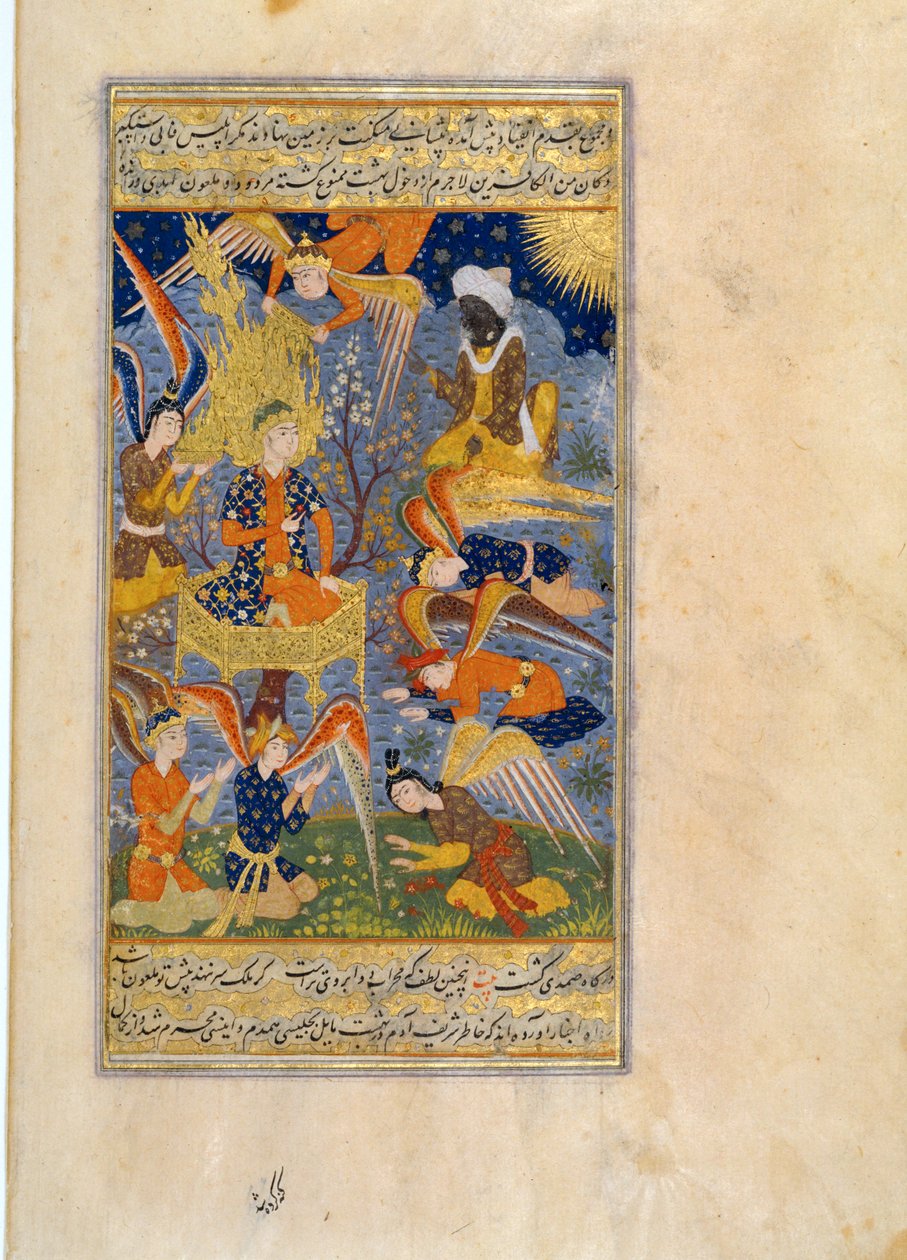 و مجموع بقدم انقیاد پیش آمده پیشانی مسکنت بر زمین نهادند مگر ابلیس فابی و استکبر
و کان من الکافرین لاجرم از دخول بهشت ممنوع گشته مردود و ملعون ابدی و رانده
درگاه صمدی گشت بیت اینچنین لطف که محرابی دابروی تراست گر ملک سر ننهد پیش تو ملعون باشد
اخبار آورده اند که خاطر شریف آدم در بهشت مایل بجلیسی همدم و انیسی محرم شد و از کمال